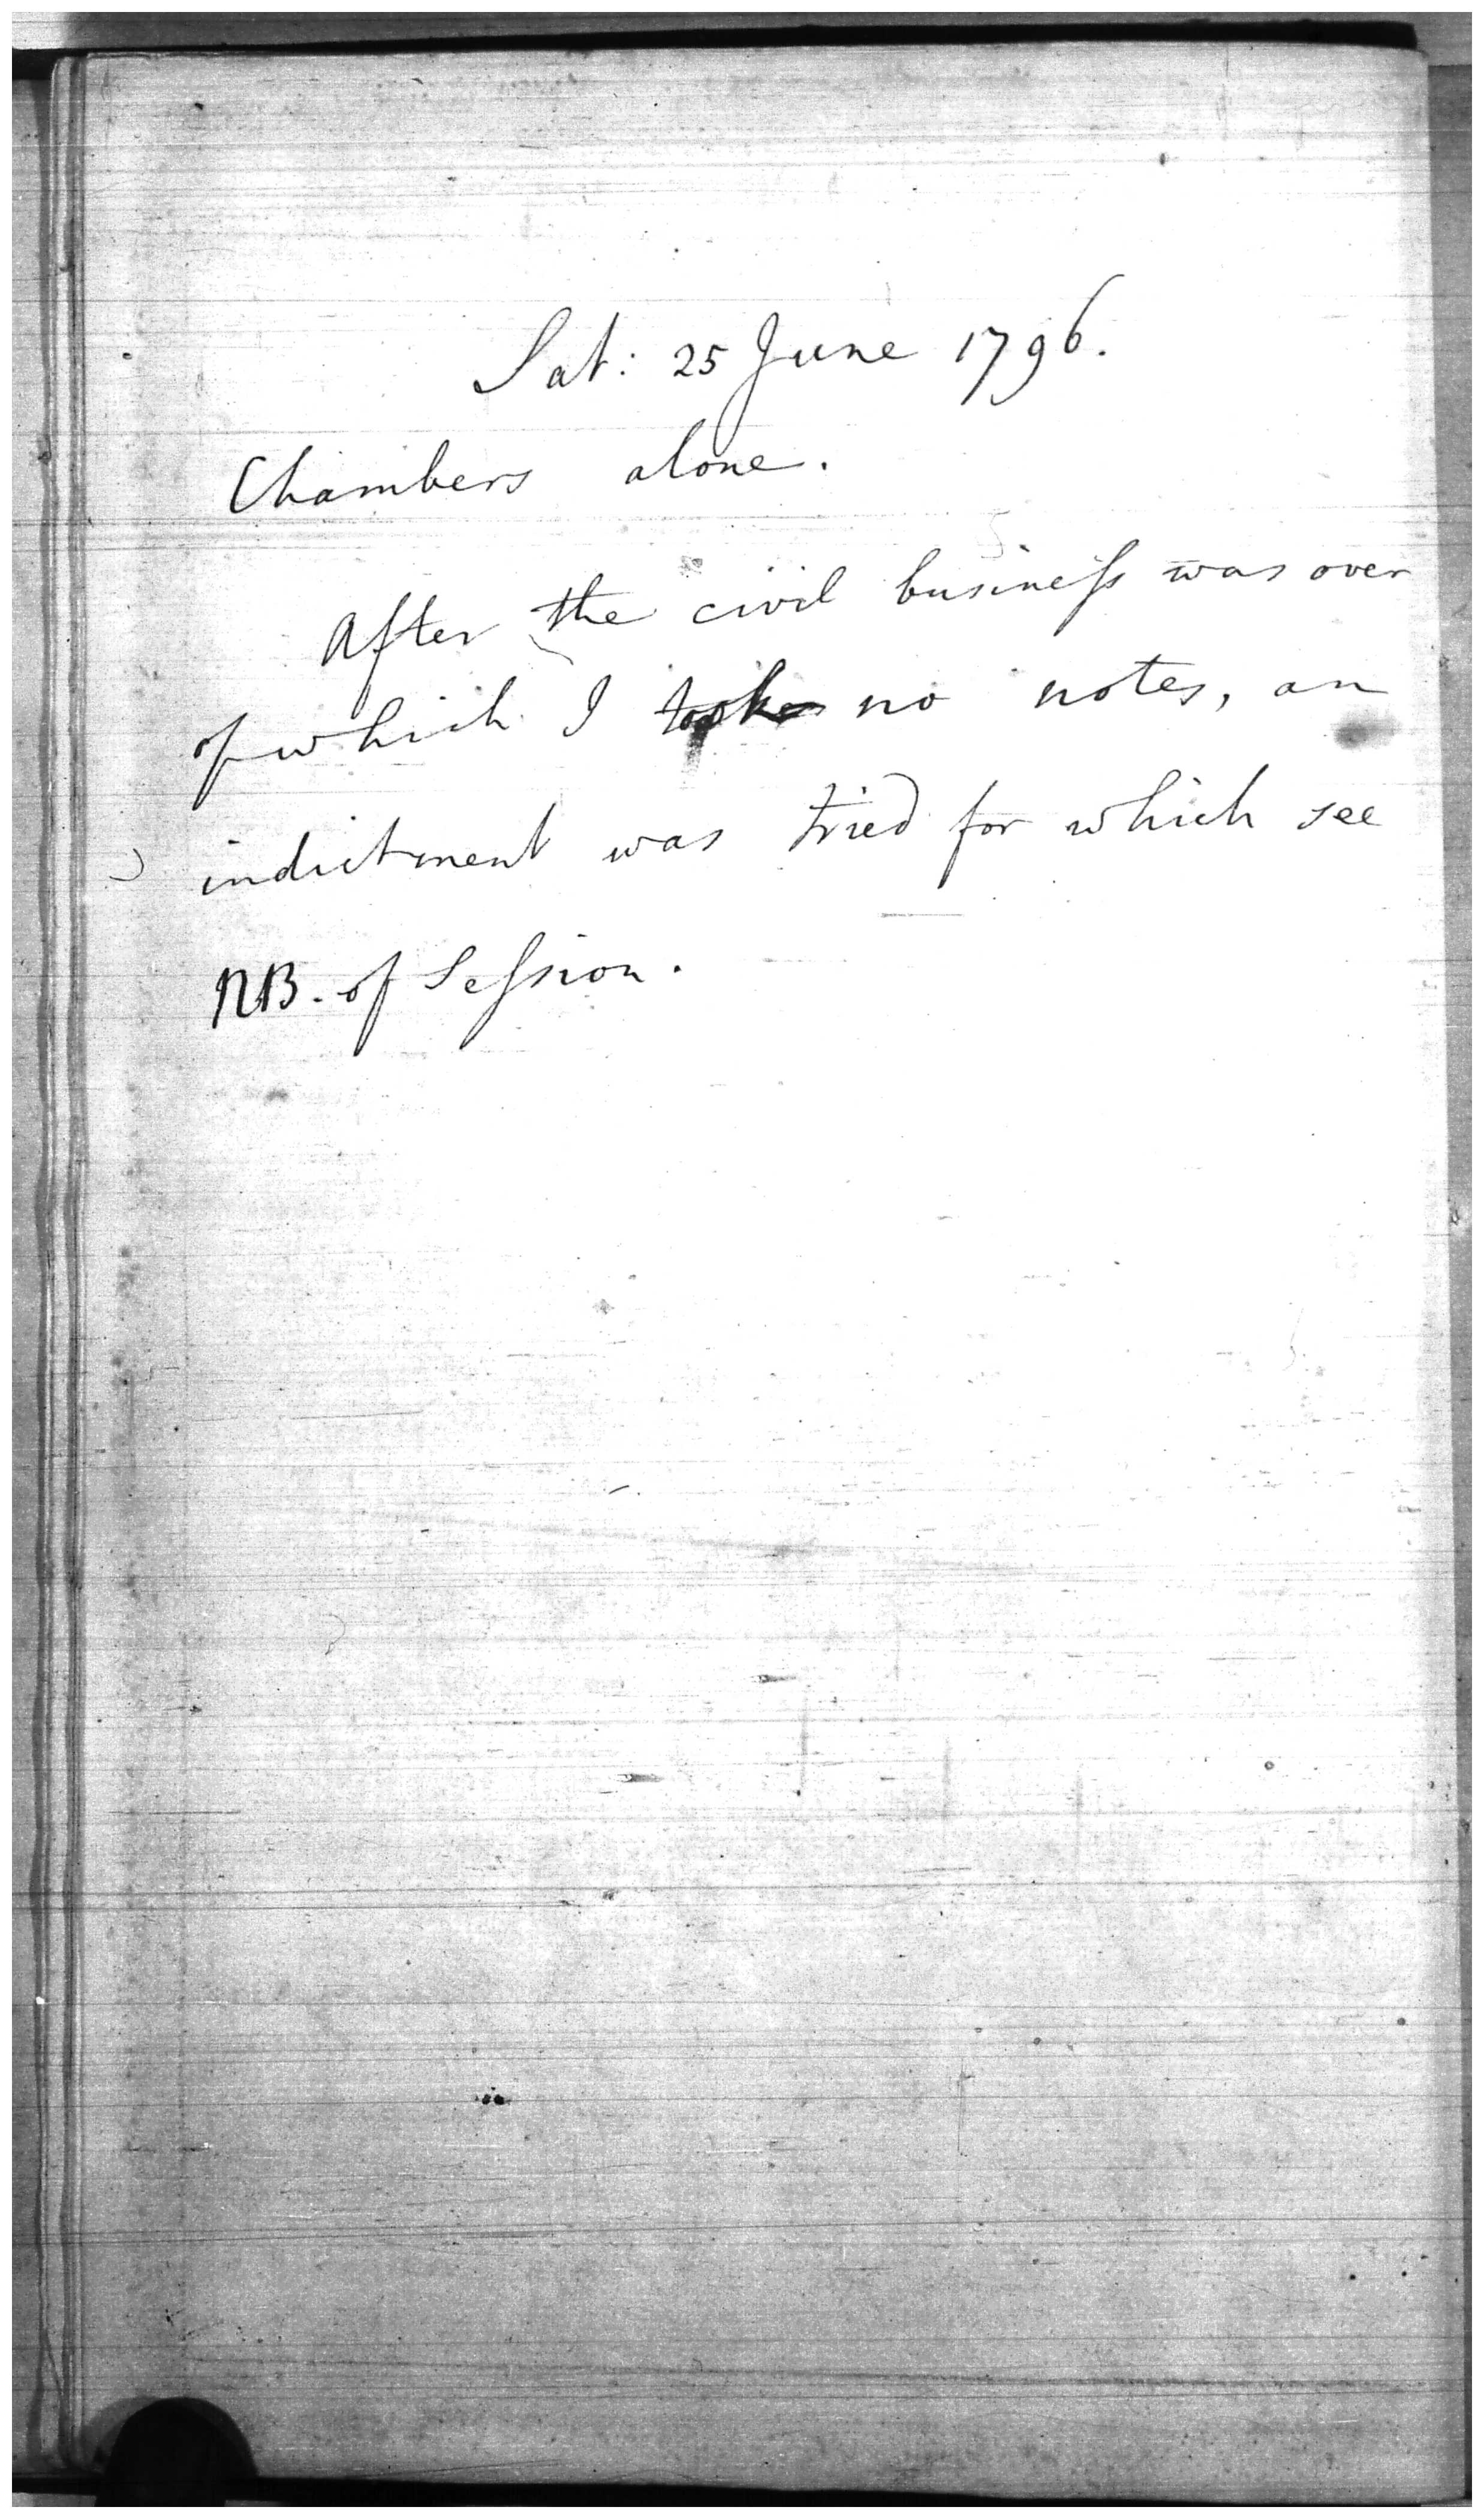 Sat: 25 June 1796.
Chambers alone.
After the civil busineſs was over
of which I took no notes, an
indictment was tried for which see
NB. of Seſsion.